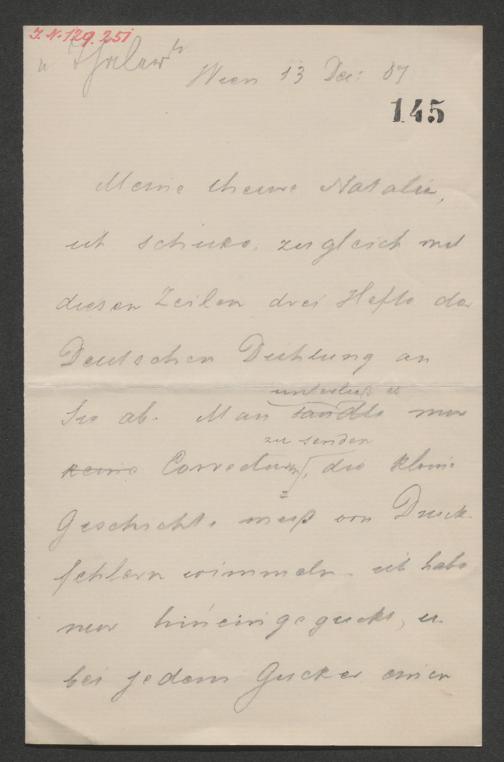 J. N. 129.251
Wien 13 Dec: 87
145
Meine theure Natalie,
ich schicke, zugleich mit
diesen Zeilen drei Hefte der
Deutschen Dichtung an
Sie ab. Man sandte mir
unterließ es
zu senden
keine Correcturen, die kleine
Geschichte muß von Druck-
fehlern wimmeln. ich habe
nur hineingeguckt, u.
bei jedem Gucker einen